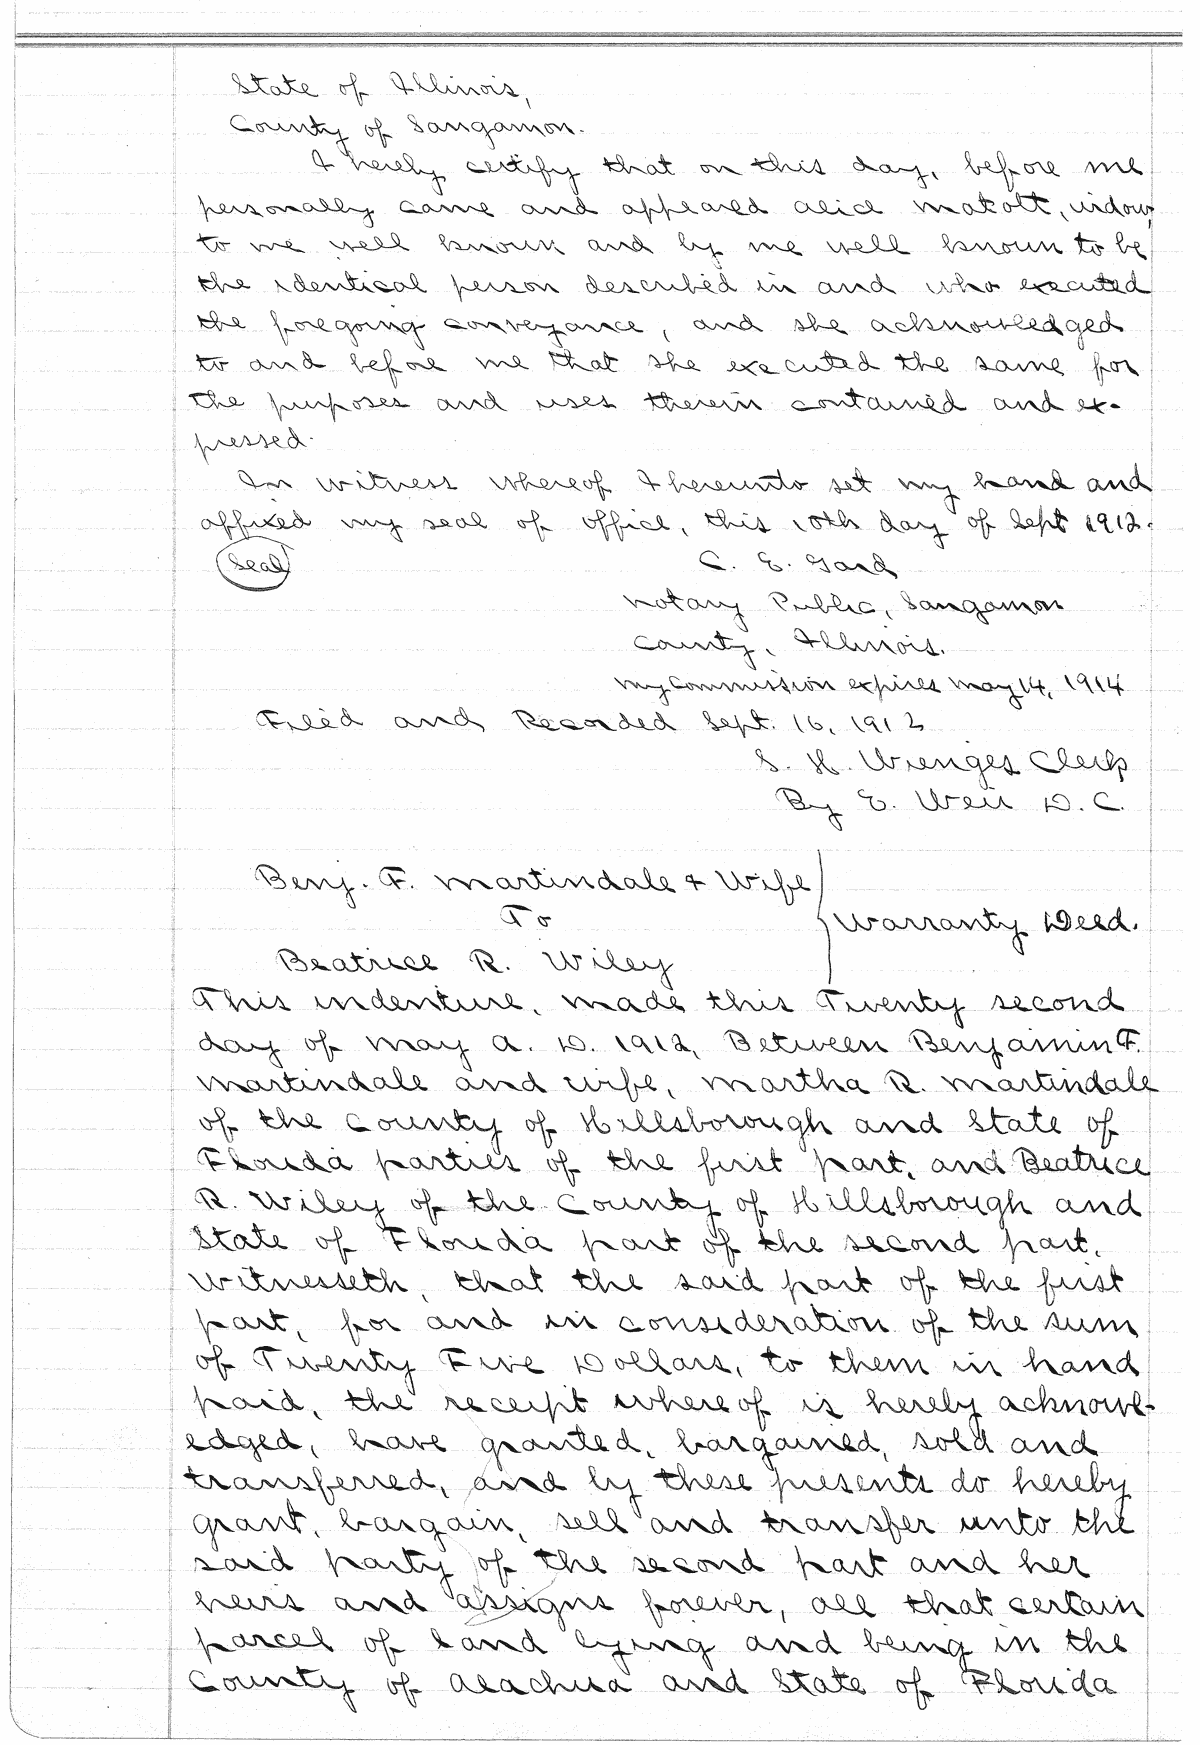 State of Illinois,
County of Sangamon.
I hereby certify that on this day, before me
personally came and appeared Alice Matott, widow,
to me well known and by me well known to be
the identical person described in and who executed
the foregoing conveyance, and she acknowledged
to and before me that she executed the same for
the purposes and uses therein contained and ex-
pressed.
In witness whereof I hereunto set my hand and
affixed my seal of office, this 10th day of Sept 1912.
Seal C. E. Gard
Notary Public, Sangamon
County, Illinois.
My Commission expires May 14, 1914
Filed and Recorded Sept. 16, 1912
S. H. Wienges Clerk
By E. Weir D.C.
Benj. F. Martindale & Wife
To Warranty Deed.
Beatrice R. Wiley
This indenture, made this Twenty second
day of May A. D. 1912, Between Benjamin F.
Martindale and wife, Martha R. Martindale
of the County of Hillsborough and State of
Florida parties of the first part, and Beatrice
R. Wiley of the County of Hillsborough and
State of Florida part of the second part,
Witnesseth, that the said part of the first
part, for and in consideration of the sum
of Twenty Five Dollars, to them in hand
paid, the receipt whereof is hereby acknowl-
edged, have granted, bargained, sold and
transferred, and by these presents do hereby
grant, bargain, sell and transfer unto the
said party of the second part and her
heirs and assigns forever, all that certain
parcel of land lying and being in the
County of Alachua and State of Florida